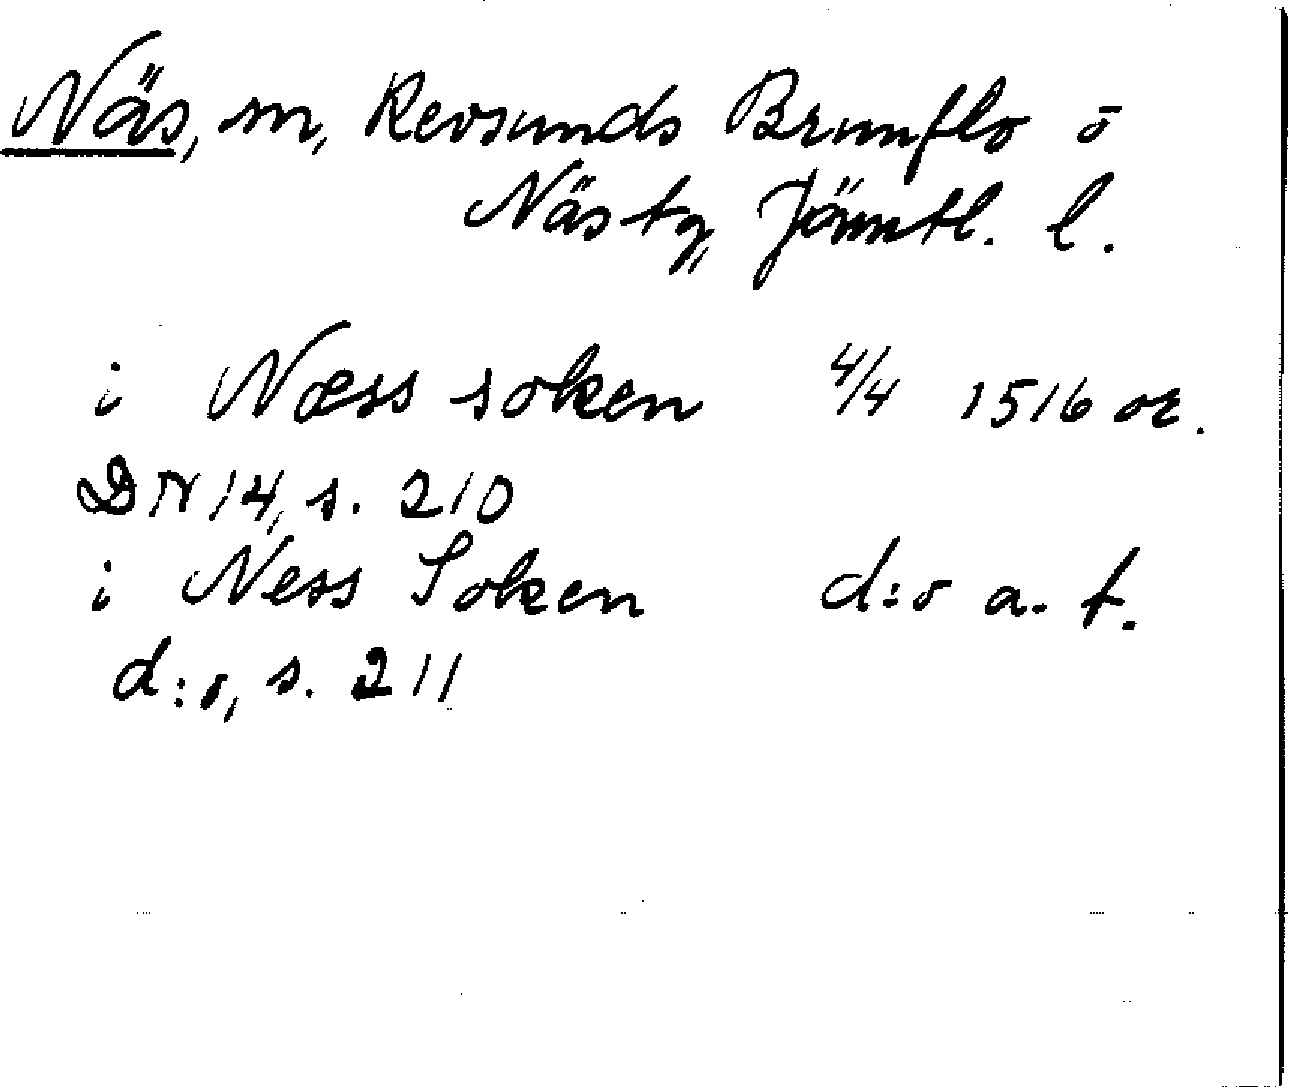 Näs, sn, Revsunds Brunflo o
Näs tg, Jämtl. l.
i Næss soken 4/4 1516 or.
DN 14, s. 210
i Ness Soken d:o a. t.
d:o, s. 211